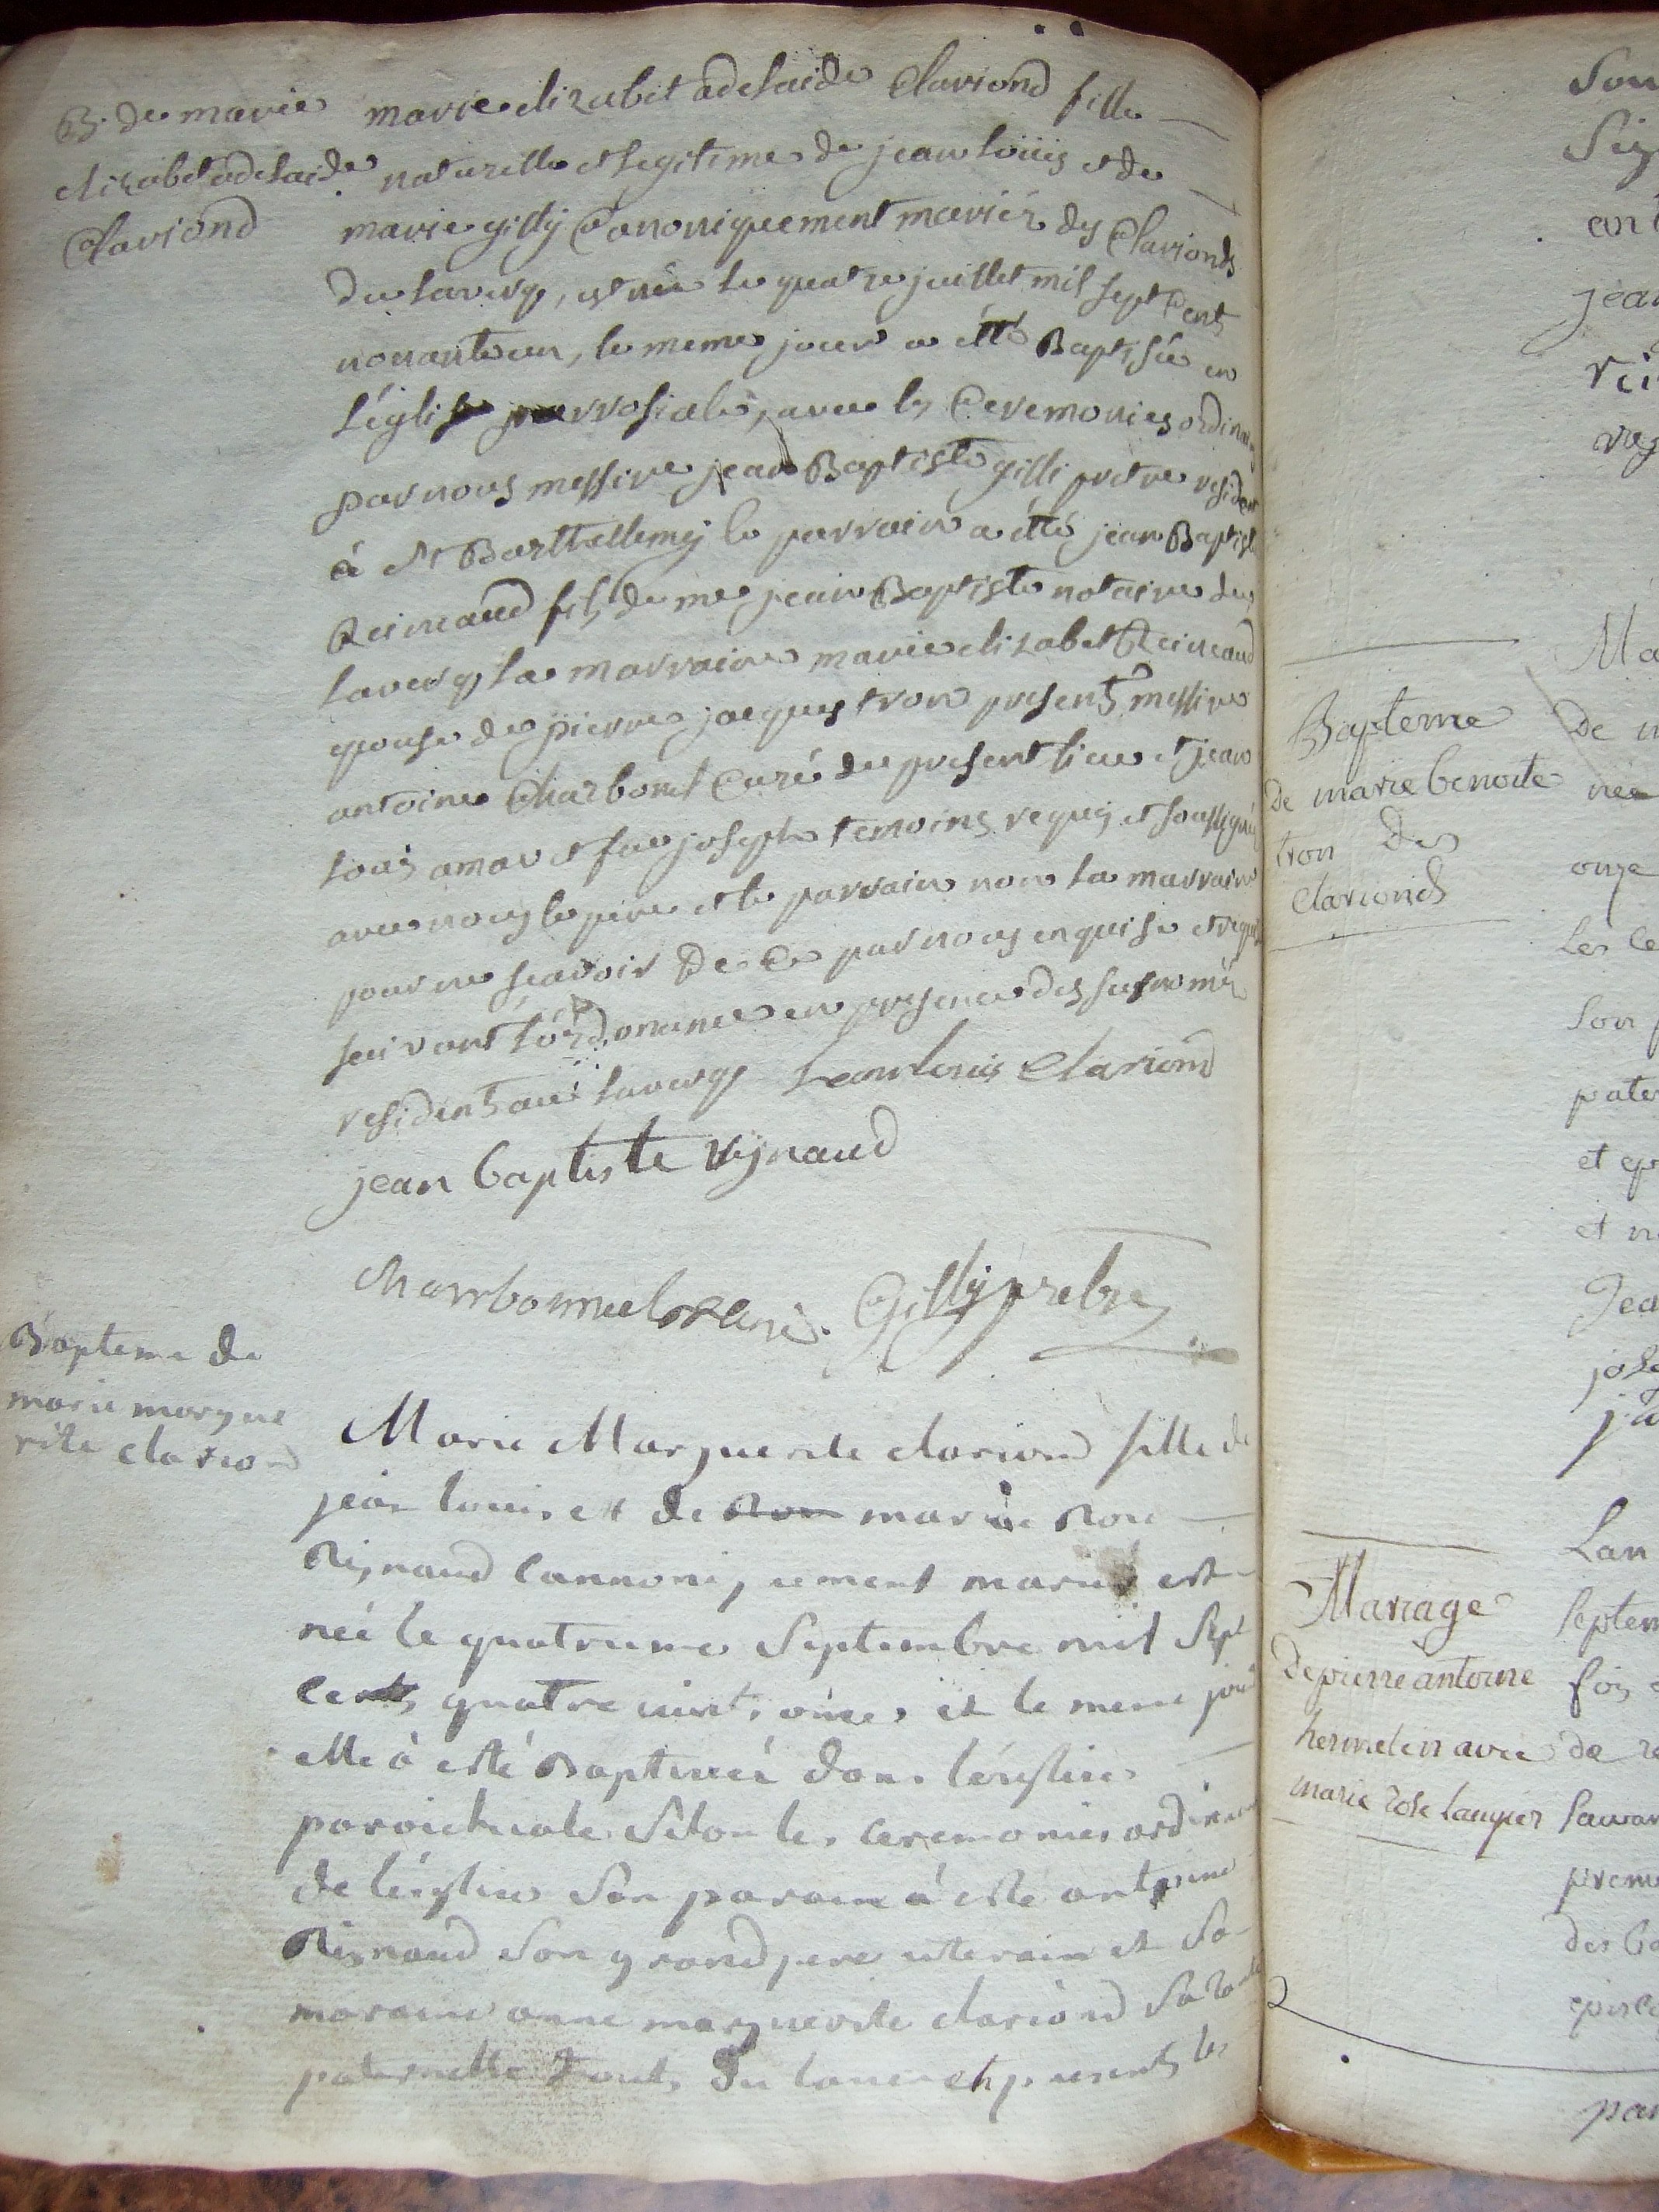 B. de marie
elizabet adelaide
Clariond
marie elizabet adelaide Clariond fille
naturelle et legitime de jean loüis et de
marie gilly Canoniquement mariéz des Clarionds
du laverq, est née le quatre juillet mil sept Cents
nonante un, le meme jour a été Baptisée en
l'église parrosiale, avec les Ceremonies ordinaires
par nous messire jean Baptiste gilli pretre resident
à St Barthellemy le parrain a été jean Baptiste
Reinaud fils de me jean Baptiste notaire du
laverq la marraine marie elizabet Reinaud
epouse de pierre jacques tron presents messire
antoine Charbonel Curé du present lieu et jean
louis amar et feu joseph temoins requis et soussignés
avec nous le pere et le parrain non la marraine
pour ne scavoir de Ce par nous enquise et requise
suivant l'ordonance en presence des susnoméz
residents au laverq jean louis Clariond
jean baptiste reynaud
charbonnel curé. Gilly prebre
Bapteme de
marie margue
rite clariond
Marie Marguerite clariond fille de
jean louis et de marie Rose
Reynaud cannoniquement mariés est
née le quatrieme Septembre mil Sept
cents quatre vints onze et le meme jour
elle à esté Baptiseé dans léglise
paroichiale Selon les ceremonies ordinaires
de léglise Son parain à esté antoine
Reynaud Son grand pere uterain et Sa
maraine anne marguerite clariond Sa tante
paternelle touts du laverq presents les
Bapteme
de marie benoite
tron des
clarionds
Mariage
de pierre antoine
hermelin avec
marie rose laugier
Sou
Sig
ant
jean
rei
reg
Ma
de m
née
onze
les ce
Son p
pater
et ep
et n
Jea
jose
Lan
Septem
fois
de re
Savoir
preme
des ba
episco
par